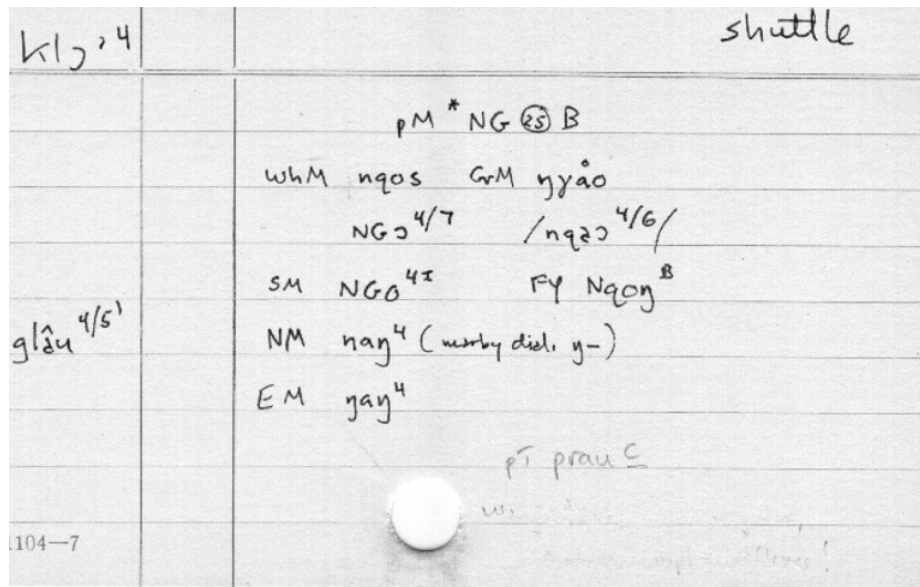 klɔ˒4 shuttle
pM *NG ㉕ B
WhM nqos GrM ŋɣåo
NGɔ 4/7 /nqɔ 4/6/
SM NGo 4I FY Nqoŋ B
glâu 4/5'
NM naŋ 4 (nearby dial. ŋ-)
EM ŋaŋ 4
pT prau C
1104—7